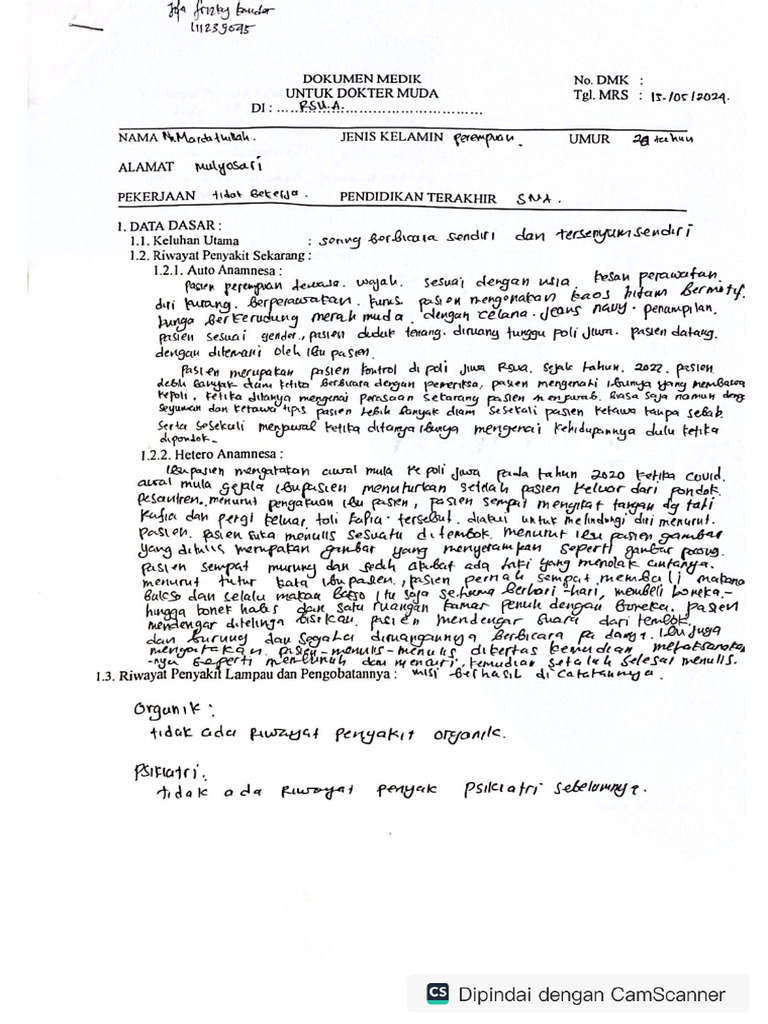 111239045
DOKUMEN MEDIK
UNTUK DOKTER MUDA
DI : ..... RSUA. ..................................
No. DMK :
Tgl. MRS : 15/05/2024.
NAMA JENIS KELAMIN perempuan. UMUR tahun
ALAMAT Mulyosari
PEKERJAAN tidak bekerja. PENDIDIKAN TERAKHIR SMA.
1. DATA DASAR :
1.1. Keluhan Utama : sering berbicara sendiri dan tersenyum sendiri
1.2. Riwayat Penyakit Sekarang :
1.2.1. Auto Anamnesa :
pasien perempuan dewasa. wajah. sesuai dengan usia. kesan perawatan.
diri kurang. berperawakan. kurus. pasien mengenakan kaos hitam bermotif.
bunga berkerudung merah muda. dengan celana. jeans navy. penampilan.
pasien sesuai gender, pasien duduk tenang. diruang tunggu poli jiwa. pasien datang.
dengan ditemani oleh ibu pasien.
pasien merupakan pasien kontrol di poli jiwa RSUA. sejak tahun. 2022. pasien
lebih banyak diam ketika berbicara dengan pemeriksa, pasien mengenali ibunya yang membawa
kepoli. ketika ditanya mengenai perasaan sekarang pasien menjawab. biasa saja namun deng
senyuman dan ketawa tipis. pasien lebih banyak diam sesekali pasien ketawa tanpa sebab
serta sesekali menjawab ketika ditanya ibunya mengenai kehidupannya dulu ketika
dipondok.
1.2.2. Hetero Anamnesa :
ibu pasien mengatakan awal mula ke poli jiwa pada tahun 2020 ketika covid.
awal mula gejala ibu pasien menuturkan setelah pasien keluar dari pondok.
pesantren. menurut pengakuan ibu pasien, pasien sempat mengikat tangan dg tali
kafia dan pergi keluar. tali kafia. tersebut. diakui untuk melindungi diri menurut.
pasien. pasien suka menulis sesuatu ditembok. menurut ibu pasien gambar
yang ditulis merupakan gambar yang menyeramkan seperti gambar
pasien sempat murung dan sedih akibat ada laki yang menolak cintanya.
menurut tutur kata ibu pasien, pasien pernah sempat membeli makana
bakso dan selalu makan bakso itu saja selama berhari-hari, membeli boneka.-
hingga bonek habis dan satu ruangan kamar penuh dengan boneka. pasien
mendengar ditelinga bisikan. pasien mendengar suara dari tembok.
dan burung dan segala diruangannya berbicara pa danya. ibu juga
mengatakan. pasien menulis-menulis dikertas kemudian melaksanakan
-nya seperti membunuh dan mencuri, kemudian setelah selesai menulis.
1.3. Riwayat Penyakit Lampau dan Pengobatannya : misi berhasil di catatannya.
Organik :
tidak ada riwayat penyakit organik.
Psikiatri.
tidak ada riwayat penyak psikiatri sebelumnya.
CS Dipindai dengan CamScanner